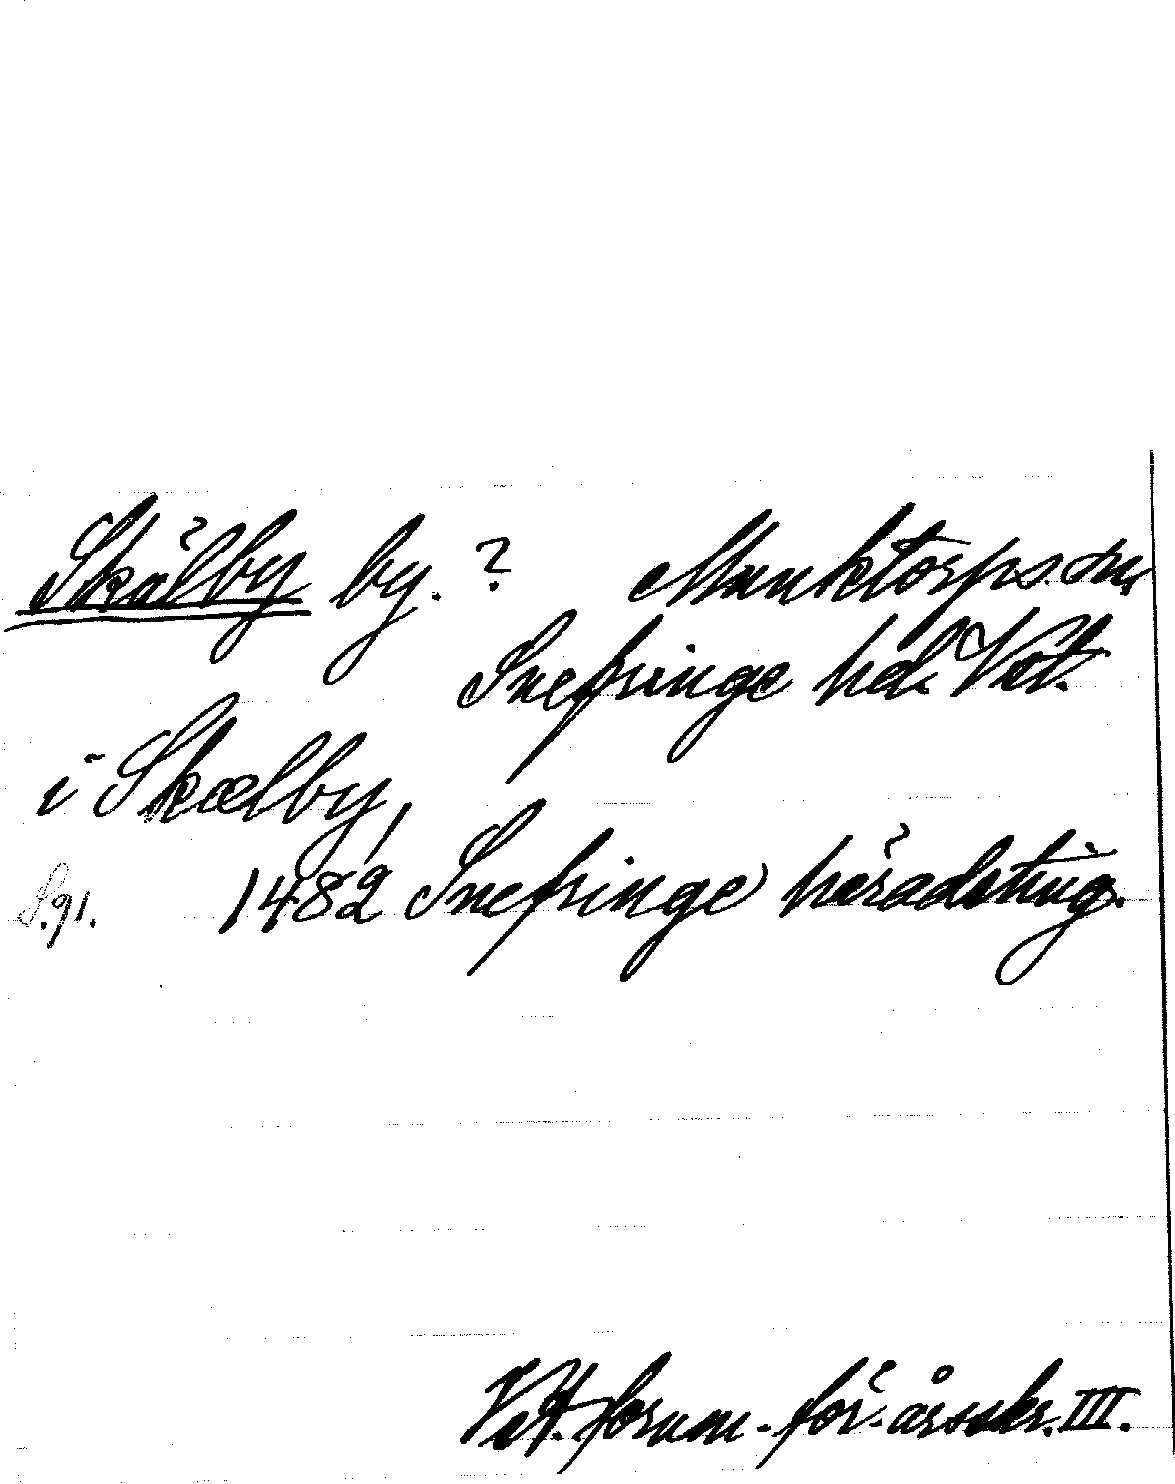 Skälby by. ? Munktorps sn,
Snefringe hd. Vst.
i Skælby,
S. 91. 1482 Snefringe häradsting.
Vst. fornm. för. årsskr. III.